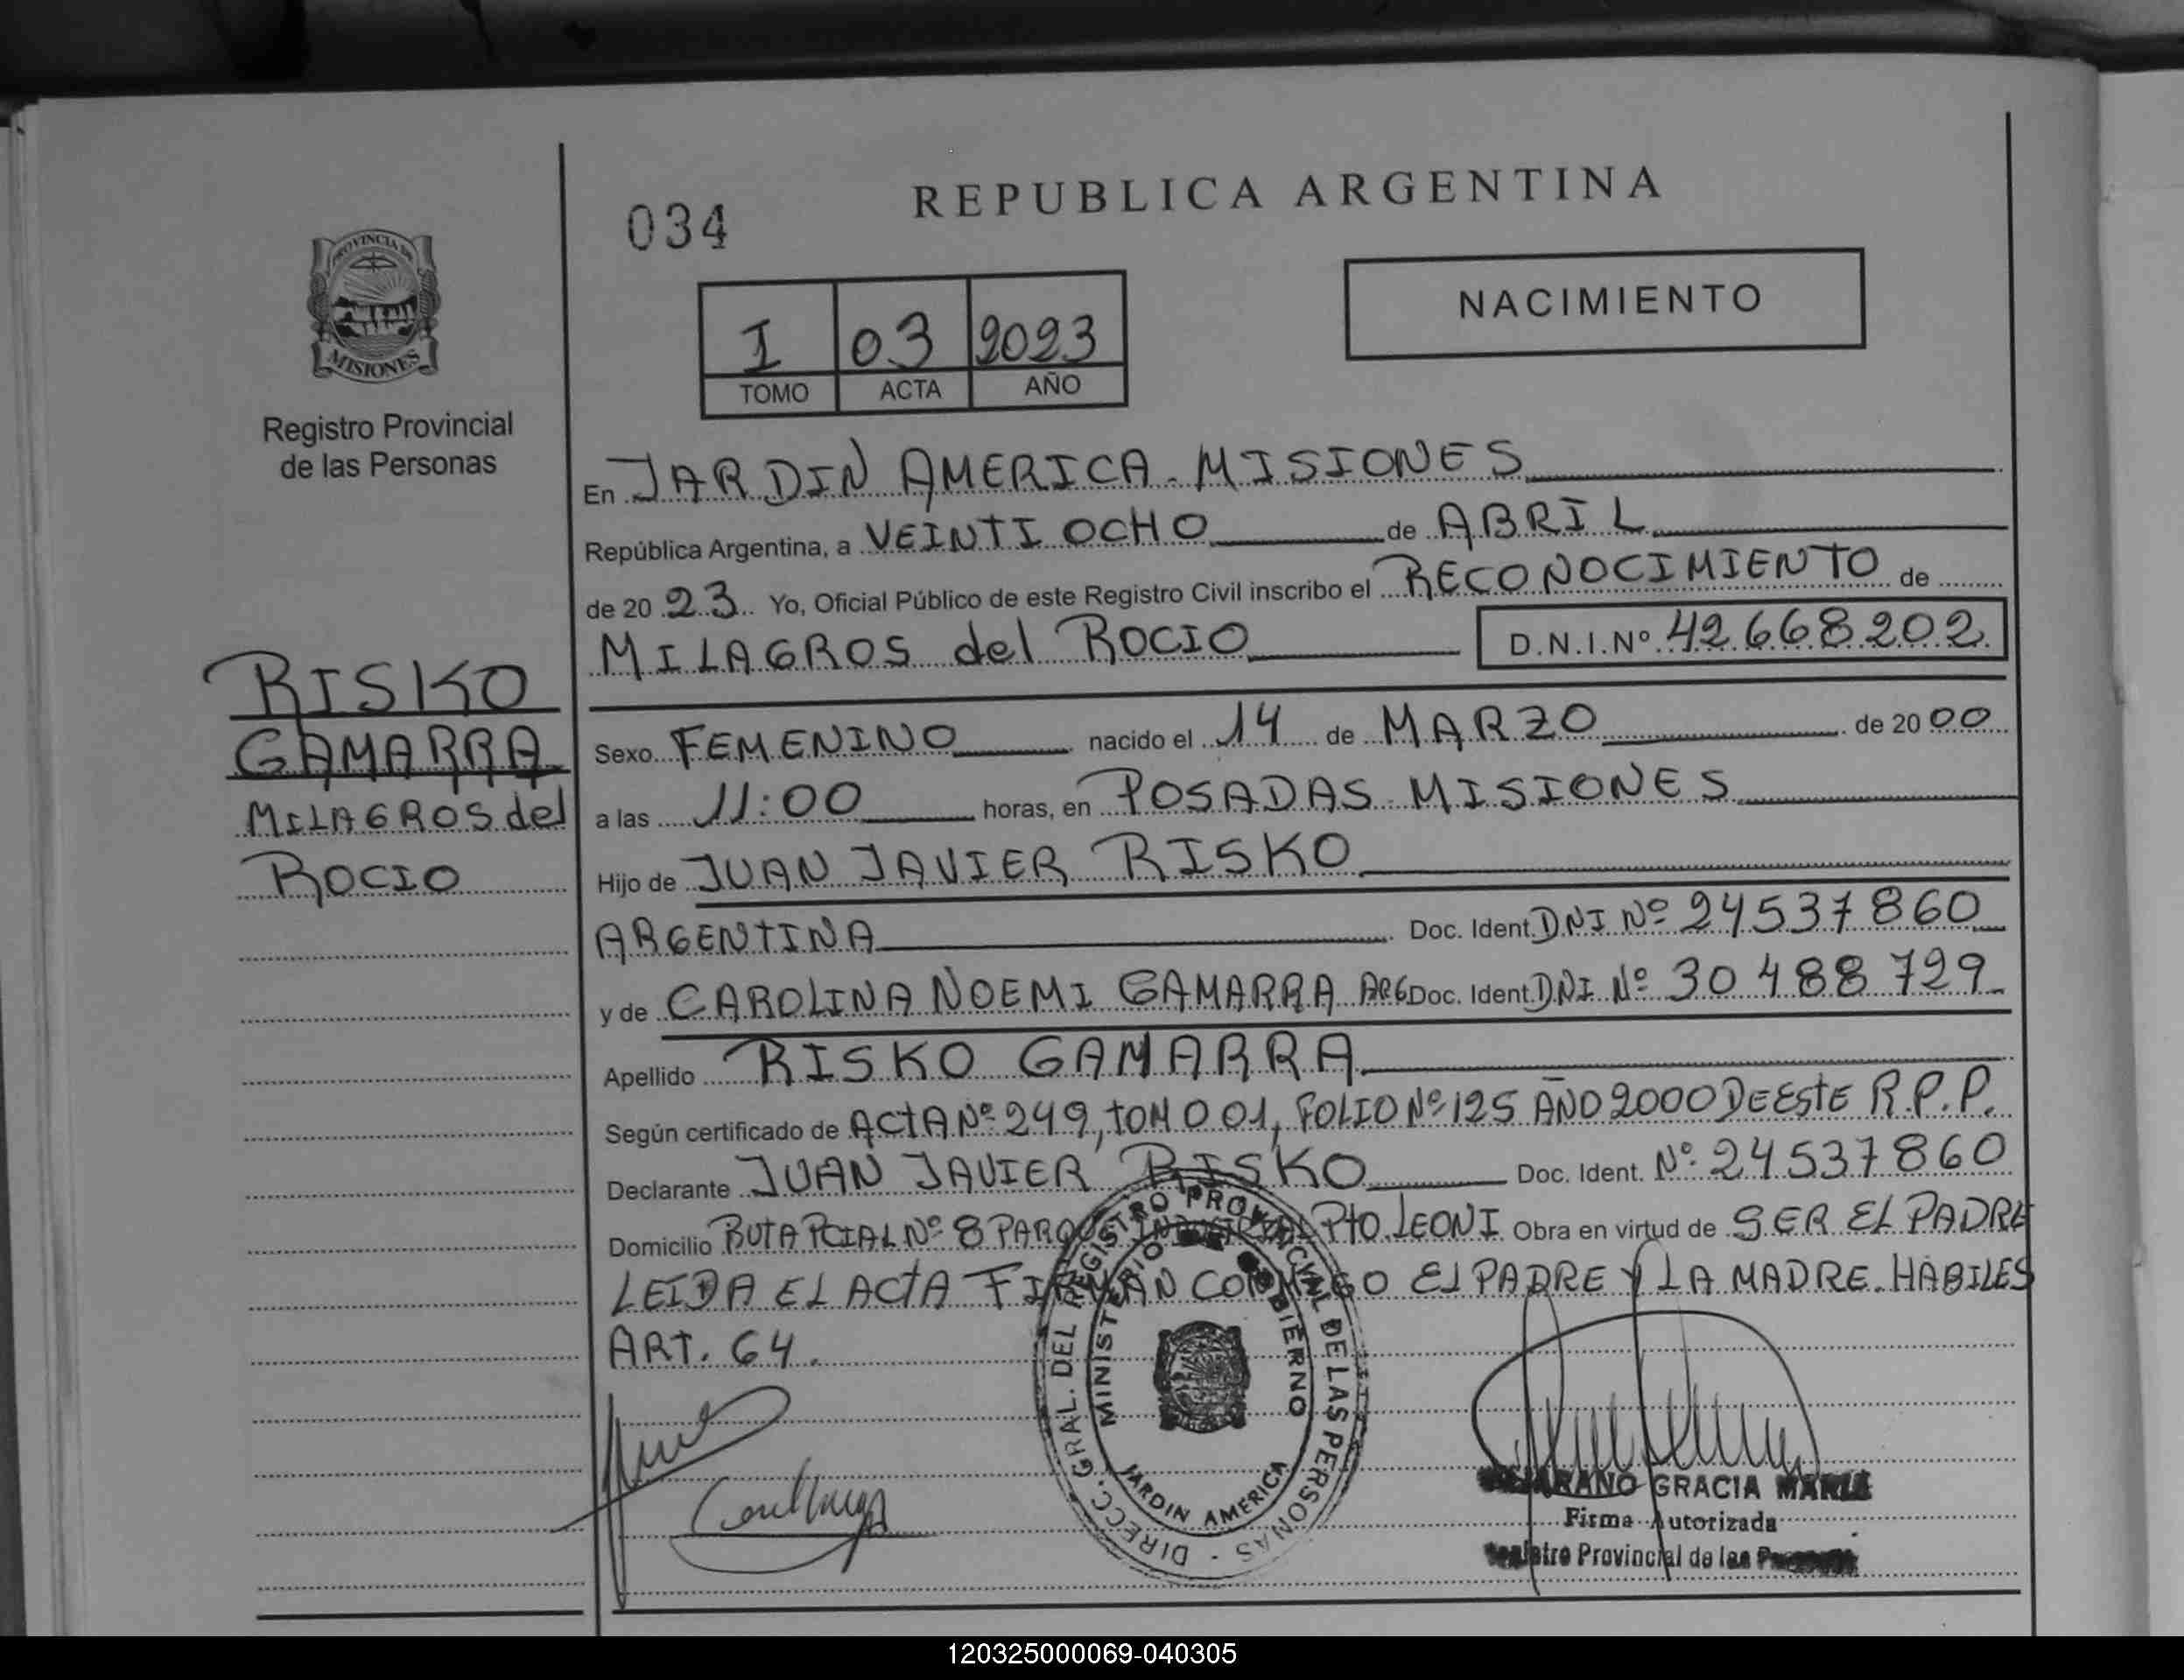 REPUBLICA ARGENTINA
034
PROVINCIA DE
MISIONES
Registro Provincial
de las Personas
NACIMIENTO
I 03 2023
TOMO ACTA AÑO
En JARDIN AMERICA - MISIONES
República Argentina, a VEINTI OCHO de ABRIL
de 20 23 Yo, Oficial Público de este Registro Civil inscribo el RECONOCIMIENTO de
MILAGROS del ROCIO D.N.I.Nº 42.668.202
RISKO
GAMARRA
MILAGROS del
ROCIO
Sexo FEMENINO nacido el 14 de MARZO de 20 00
a las 11:00 horas, en POSADAS - MISIONES
Hijo de JUAN JAVIER RISKO
ARGENTINA Doc. Ident. DNI Nº 24537860
y de CAROLINA NOEMI GAMARRA ARG Doc. Ident. DNI Nº 30 488 729
Apellido RISKO GAMARRA
Según certificado de ACTA Nº 249, TOMO 01, FOLIO Nº 125 AÑO 2000 DE ESTE R.P.P.
Declarante JUAN JAVIER RISKO Doc. Ident. Nº 24537860
Domicilio RUTA PCIAL Nº 8 PARQUE INDUSTRIAL PTO. LEONI Obra en virtud de SER EL PADRE
LEIDA EL ACTA FIRMAN CONMIGO EL PADRE Y LA MADRE. HABILES
ART. 64.
DIRECC. GRAL. DEL REGISTRO PROVINCIAL DE LAS PERSONAS
MINISTERIO DE GOBIERNO
JARDIN AMERICA
GRACIA MARIA
Firma Autorizada
Registro Provincial de las Personas
120325000069-040305